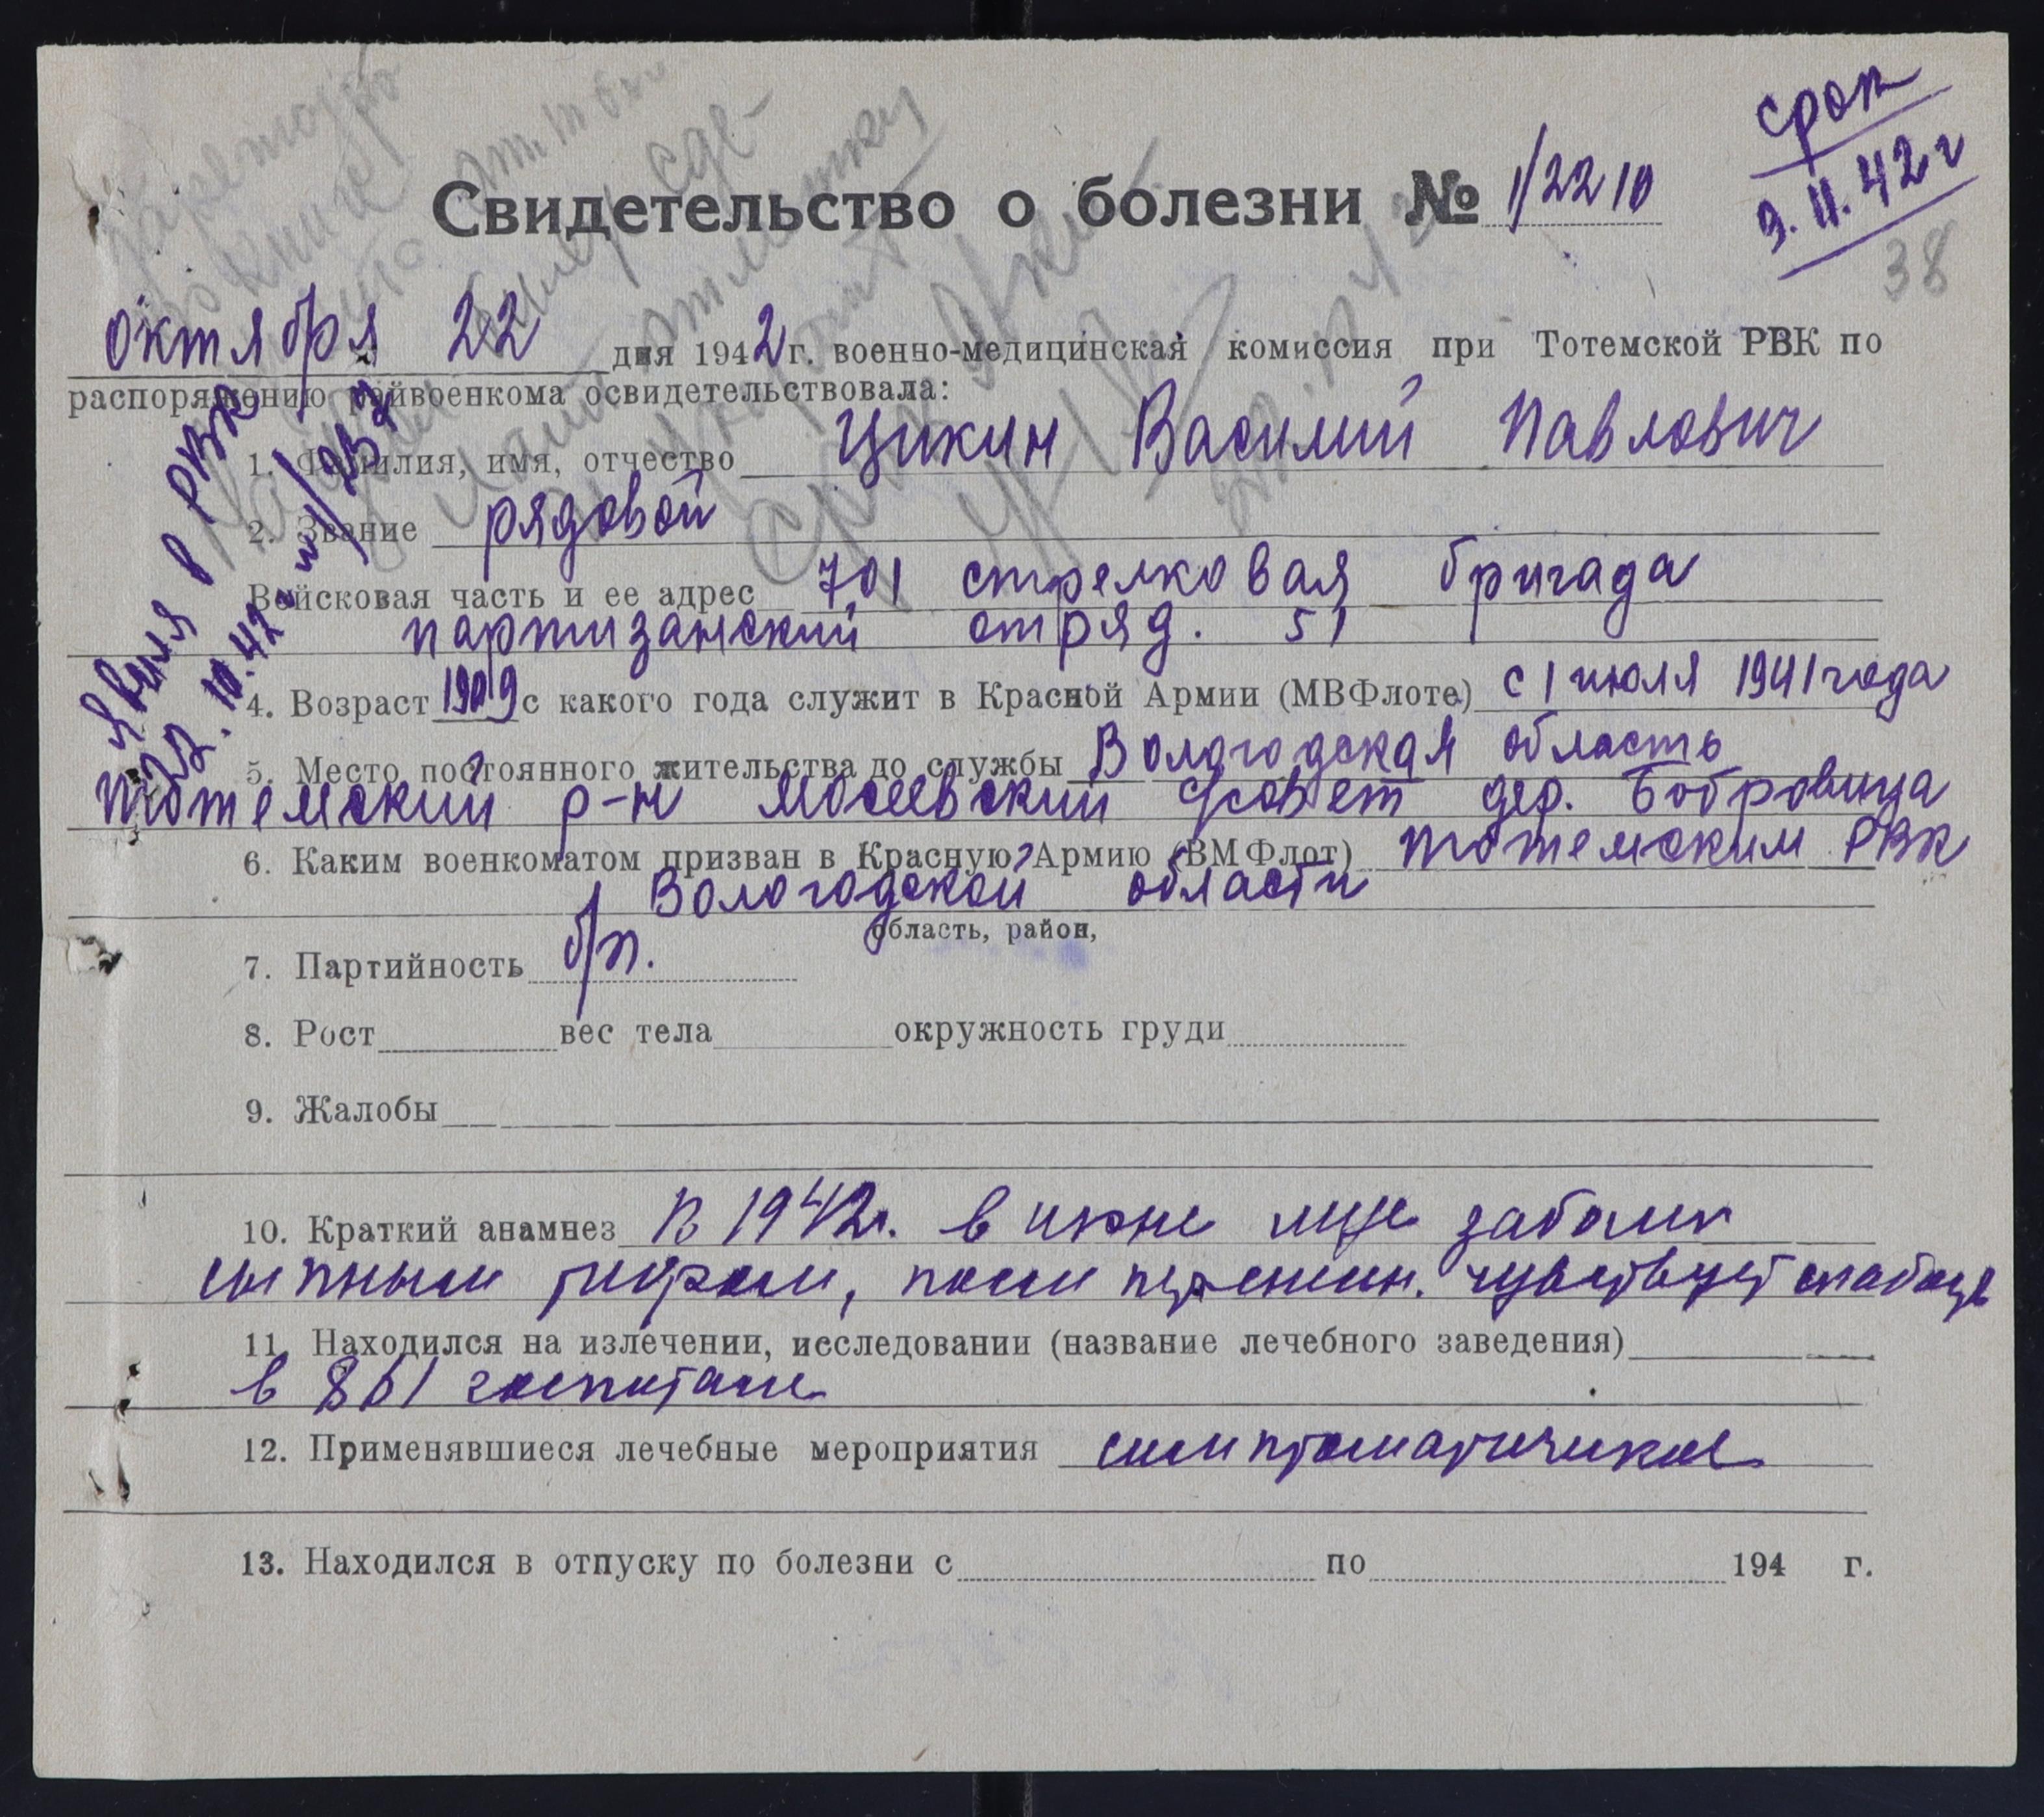 срок
9.11.42 г
38
Свидетельство о болезни № 1/2210
октября 22 дня 1942 г. военно-медицинская комиссия при Тотемской РВК по
распоряжению райвоенкома освидетельствовала:
1. Фамилия, имя, отчество Цикин Василий Павлович
2. Звание рядовой
Войсковая часть и ее адрес 701 стрелковая бригада
партизанский отряд. 51
4. Возраст 1909 с какого года служит в Красной Армии (МВФлоте) с 1 июля 1941 года
5. Место постоянного жительства до службы Вологодская область
Тотемский р-н Мосеевский с/совет дер. Бобровица
6. Каким военкоматом призван в Красную Армию (ВМФлот) Тотемским РВК
Вологодской области
область, район,
7. Партийность б/п.
8. Рост вес тела окружность груди
9. Жалобы
10. Краткий анамнез В 1942г. в июне м-це заболел
сыпным тифом, после перенесен. чувствует слабость
11. Находился на излечении, исследовании (название лечебного заведения)
в 861 госпитале
12. Применявшиеся лечебные мероприятия симптоматическое
13. Находился в отпуску по болезни с по 194 г.
Явился в РВК
22.10.42